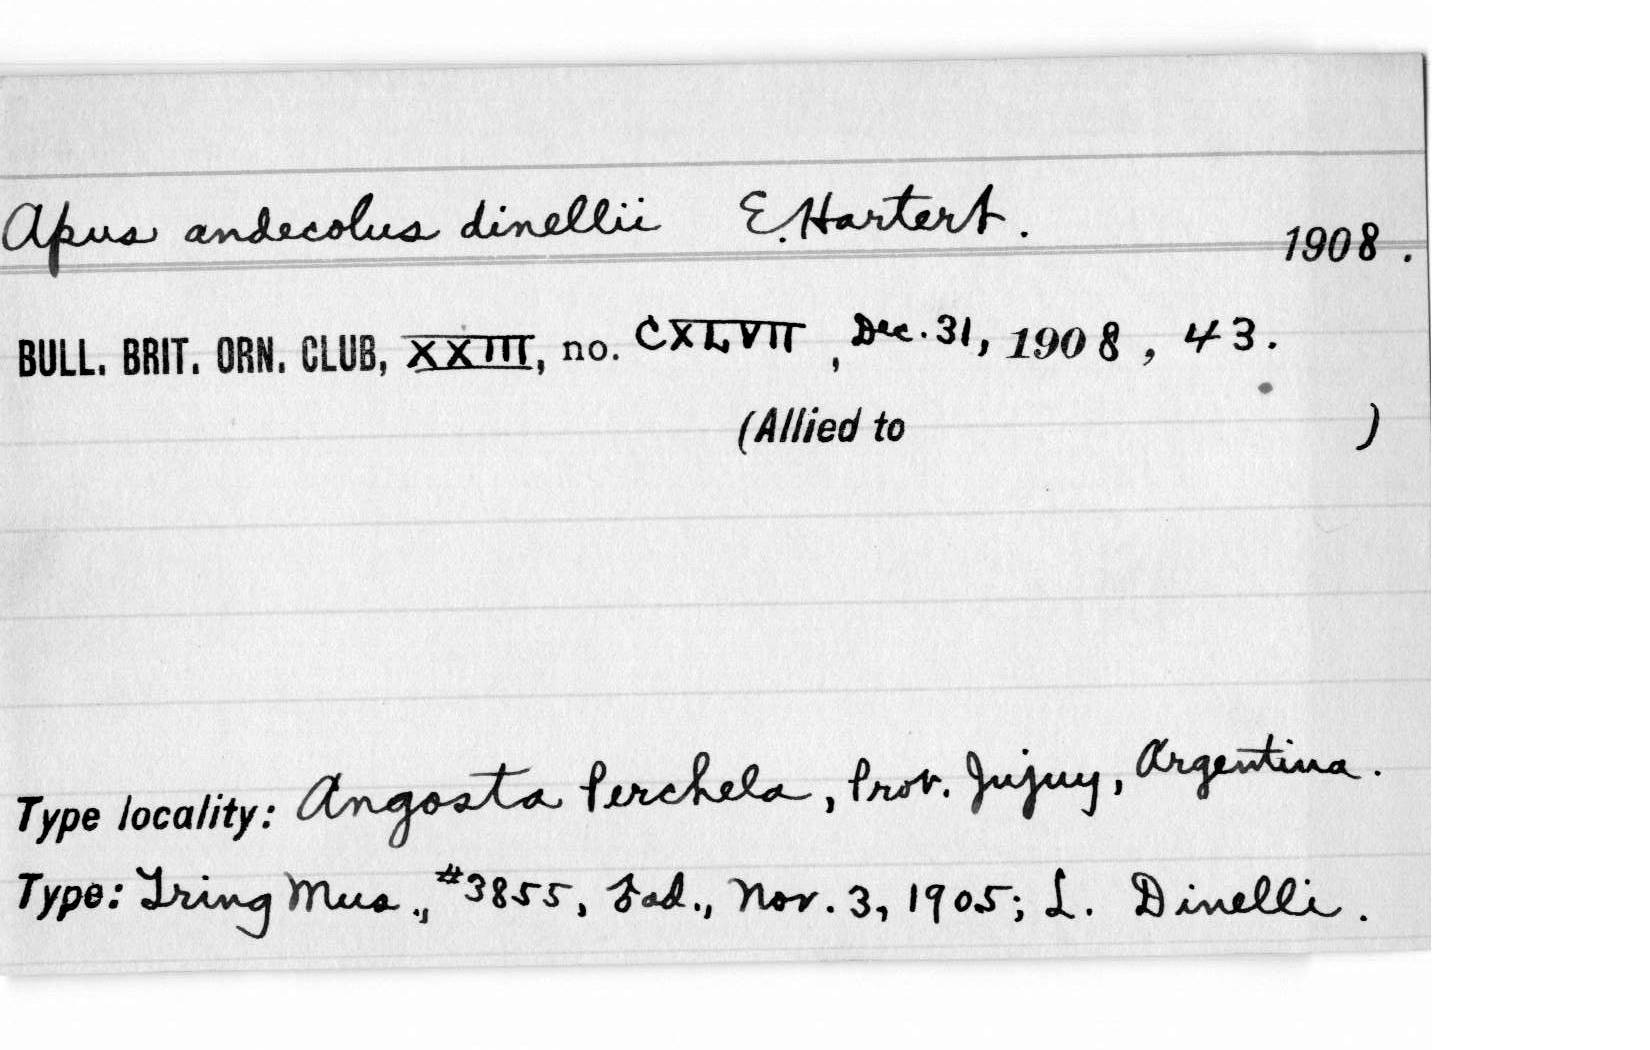 Apus andecolus dinellii E. Hartert. 1908.
BULL. BRIT. ORN. CLUB, XXIII, no. CXLVII, Dec. 31, 1908, 43.
(Allied to )
Type locality: Angosta Perchela, Prov. Jujuy, Argentina.
Type: Tring Mus., #3855, ad., Nov. 3, 1905; L. Dinelli.